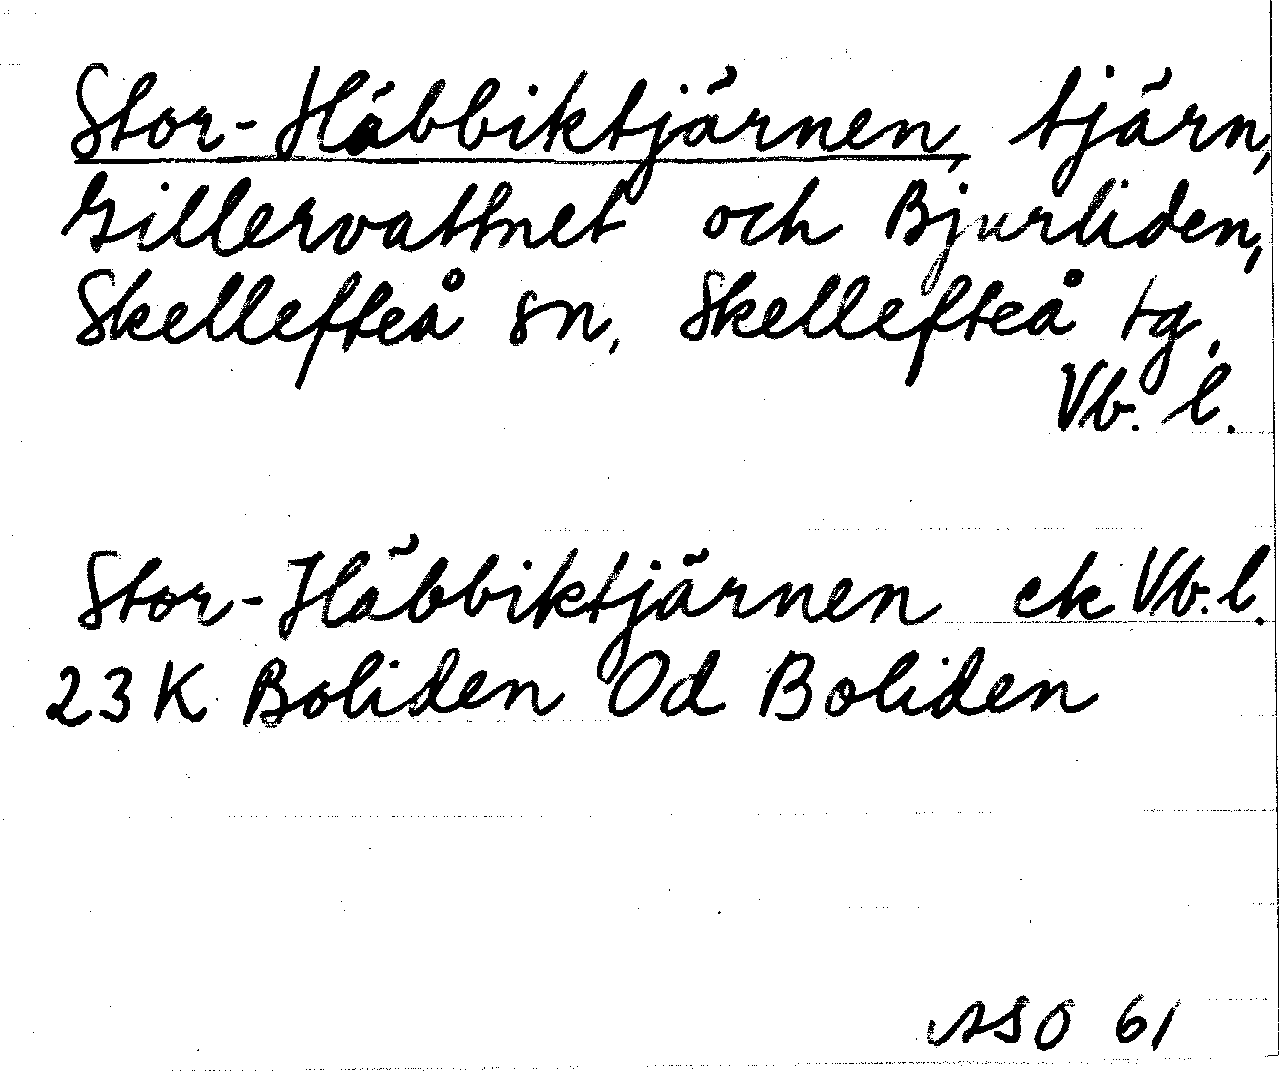 Stor-Häbbiktjärnen, tjärn,
Gillervattnet och Bjurliden,
Skellefteå sn, Skellefteå tg,
Vb. l.
Stor-Häbbiktjärnen ek Vb. l.
23K Boliden Od Boliden
ASO 61